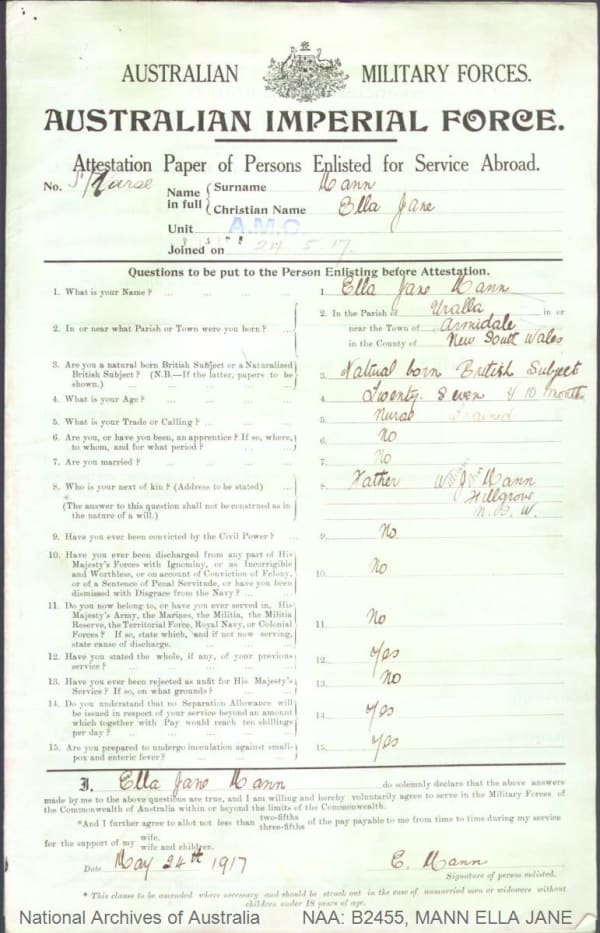 AUSTRALIAN MILITARY FORCES.
AUSTRALIAN IMPERIAL FORCE.
Attestation Paper of Persons Enlisted for Service Abroad.
No. S/Nurse
Name in full { Surname Mann
Christian Name Ella Jane
Unit A.M.C.
Joined on 24 5.17.
Questions to be put to the Person Enlisting before Attestation.
1. What is your Name? ... ... ... ... 1. Ella Jane Mann
2. In or near what Parish or Town were you born? ... 2. In the Parish of Uralla in or
near the Town of Armidale
in the County of New South Wales
3. Are you a natural born British Subject or a Naturalized
British Subject? (N.B.—If the latter, papers to be
shown.) ... 3. Natural born British Subject
4. What is your Age? ... 4. Twenty Seven & 10 months
5. What is your Trade or Calling? ... 5. Nurse Trained
6. Are you, or have you been, an apprentice? If so, where,
to whom, and for what period? ... 6. No
7. Are you married? ... 7. No
8. Who is your next of kin? (Address to be stated) ... 8. Father W Mann
Hillgrove
N.S.W.
(The answer to this question shall not be construed as in
the nature of a will.)
9. Have you ever been convicted by the Civil Power? ... 9. No
10. Have you ever been discharged from any part of His
Majesty's Forces with Ignominy, or as Incorrigible
and Worthless, or on account of Conviction of Felony,
or of a Sentence of Penal Servitude, or have you been
dismissed with Disgrace from the Navy? ... 10. No
11. Do you now belong to, or have you ever served in, His
Majesty's Army, the Marines, the Militia, the Militia
Reserve, the Territorial Force, Royal Navy, or Colonial
Forces? If so, state which, and if not now serving,
state cause of discharge. ... 11. No
12. Have you stated the whole, if any, of your previous
service? ... 12. Yes
13. Have you ever been rejected as unfit for His Majesty's
Service? If so, on what grounds? ... 13. No
14. Do you understand that no Separation Allowance will
be issued in respect of your service beyond an amount
which together with Pay would reach ten shillings
per day? ... 14. Yes
15. Are you prepared to undergo inoculation against small-
pox and enteric fever? ... 15. Yes
I, Ella Jane Mann do solemnly declare that the above answers
made by me to the above questions are true, and I am willing and hereby voluntarily agree to serve in the Military Forces of
the Commonwealth of Australia within or beyond the limits of the Commonwealth.
*And I further agree to allot not less than two-fifths three-fifths of the pay payable to me from time to time during my service
for the support of my wife. wife and children.
Date May 24th 1917 E. Mann
Signature of person enlisted.
* This clause to be amended where necessary and should be struck out in the case of unmarried men or widowers without
children under 18 years of age.
National Archives of Australia NAA: B2455, MANN ELLA JANE